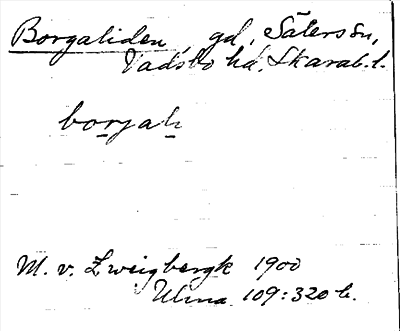 Borgaliden, gd, Säters sn,
Vadsbo hd. Skarab. l.
borgah
M. v. Zweigbergk 1900
Ulma 109:320 b.